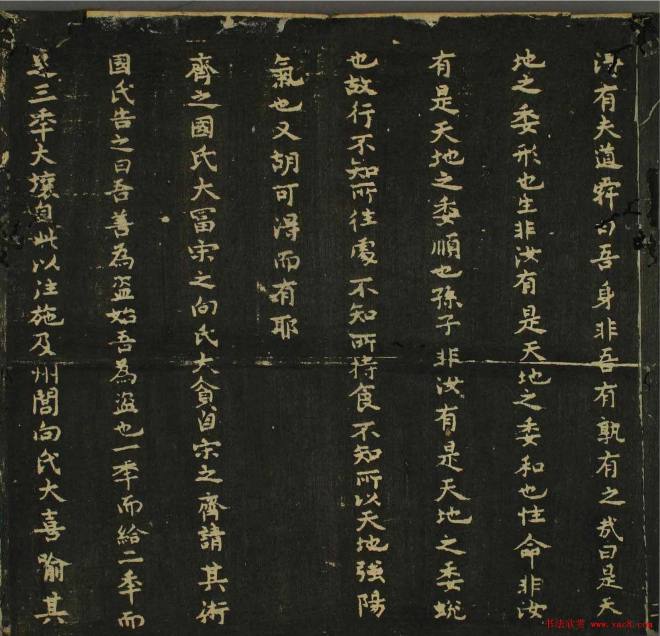 得有夫道舜曰吾身非吾有孰有之哉曰是天
地之委形也生非汝有是天地之委和也性命非汝
有是天地之委順也孫子非汝有是天地之委蛻
也故行不知所往處不知所持食不知所以天地強陽
氣也又胡可得而有耶
齊之國氏大富宋之向氏大貧自宋之齊請其術
國氏告之曰吾善為盜始吾為盜也一年而給二年而
足三年大壤自此以往施及州閭向氏大喜喻其
书法欣赏 www.yac8.com